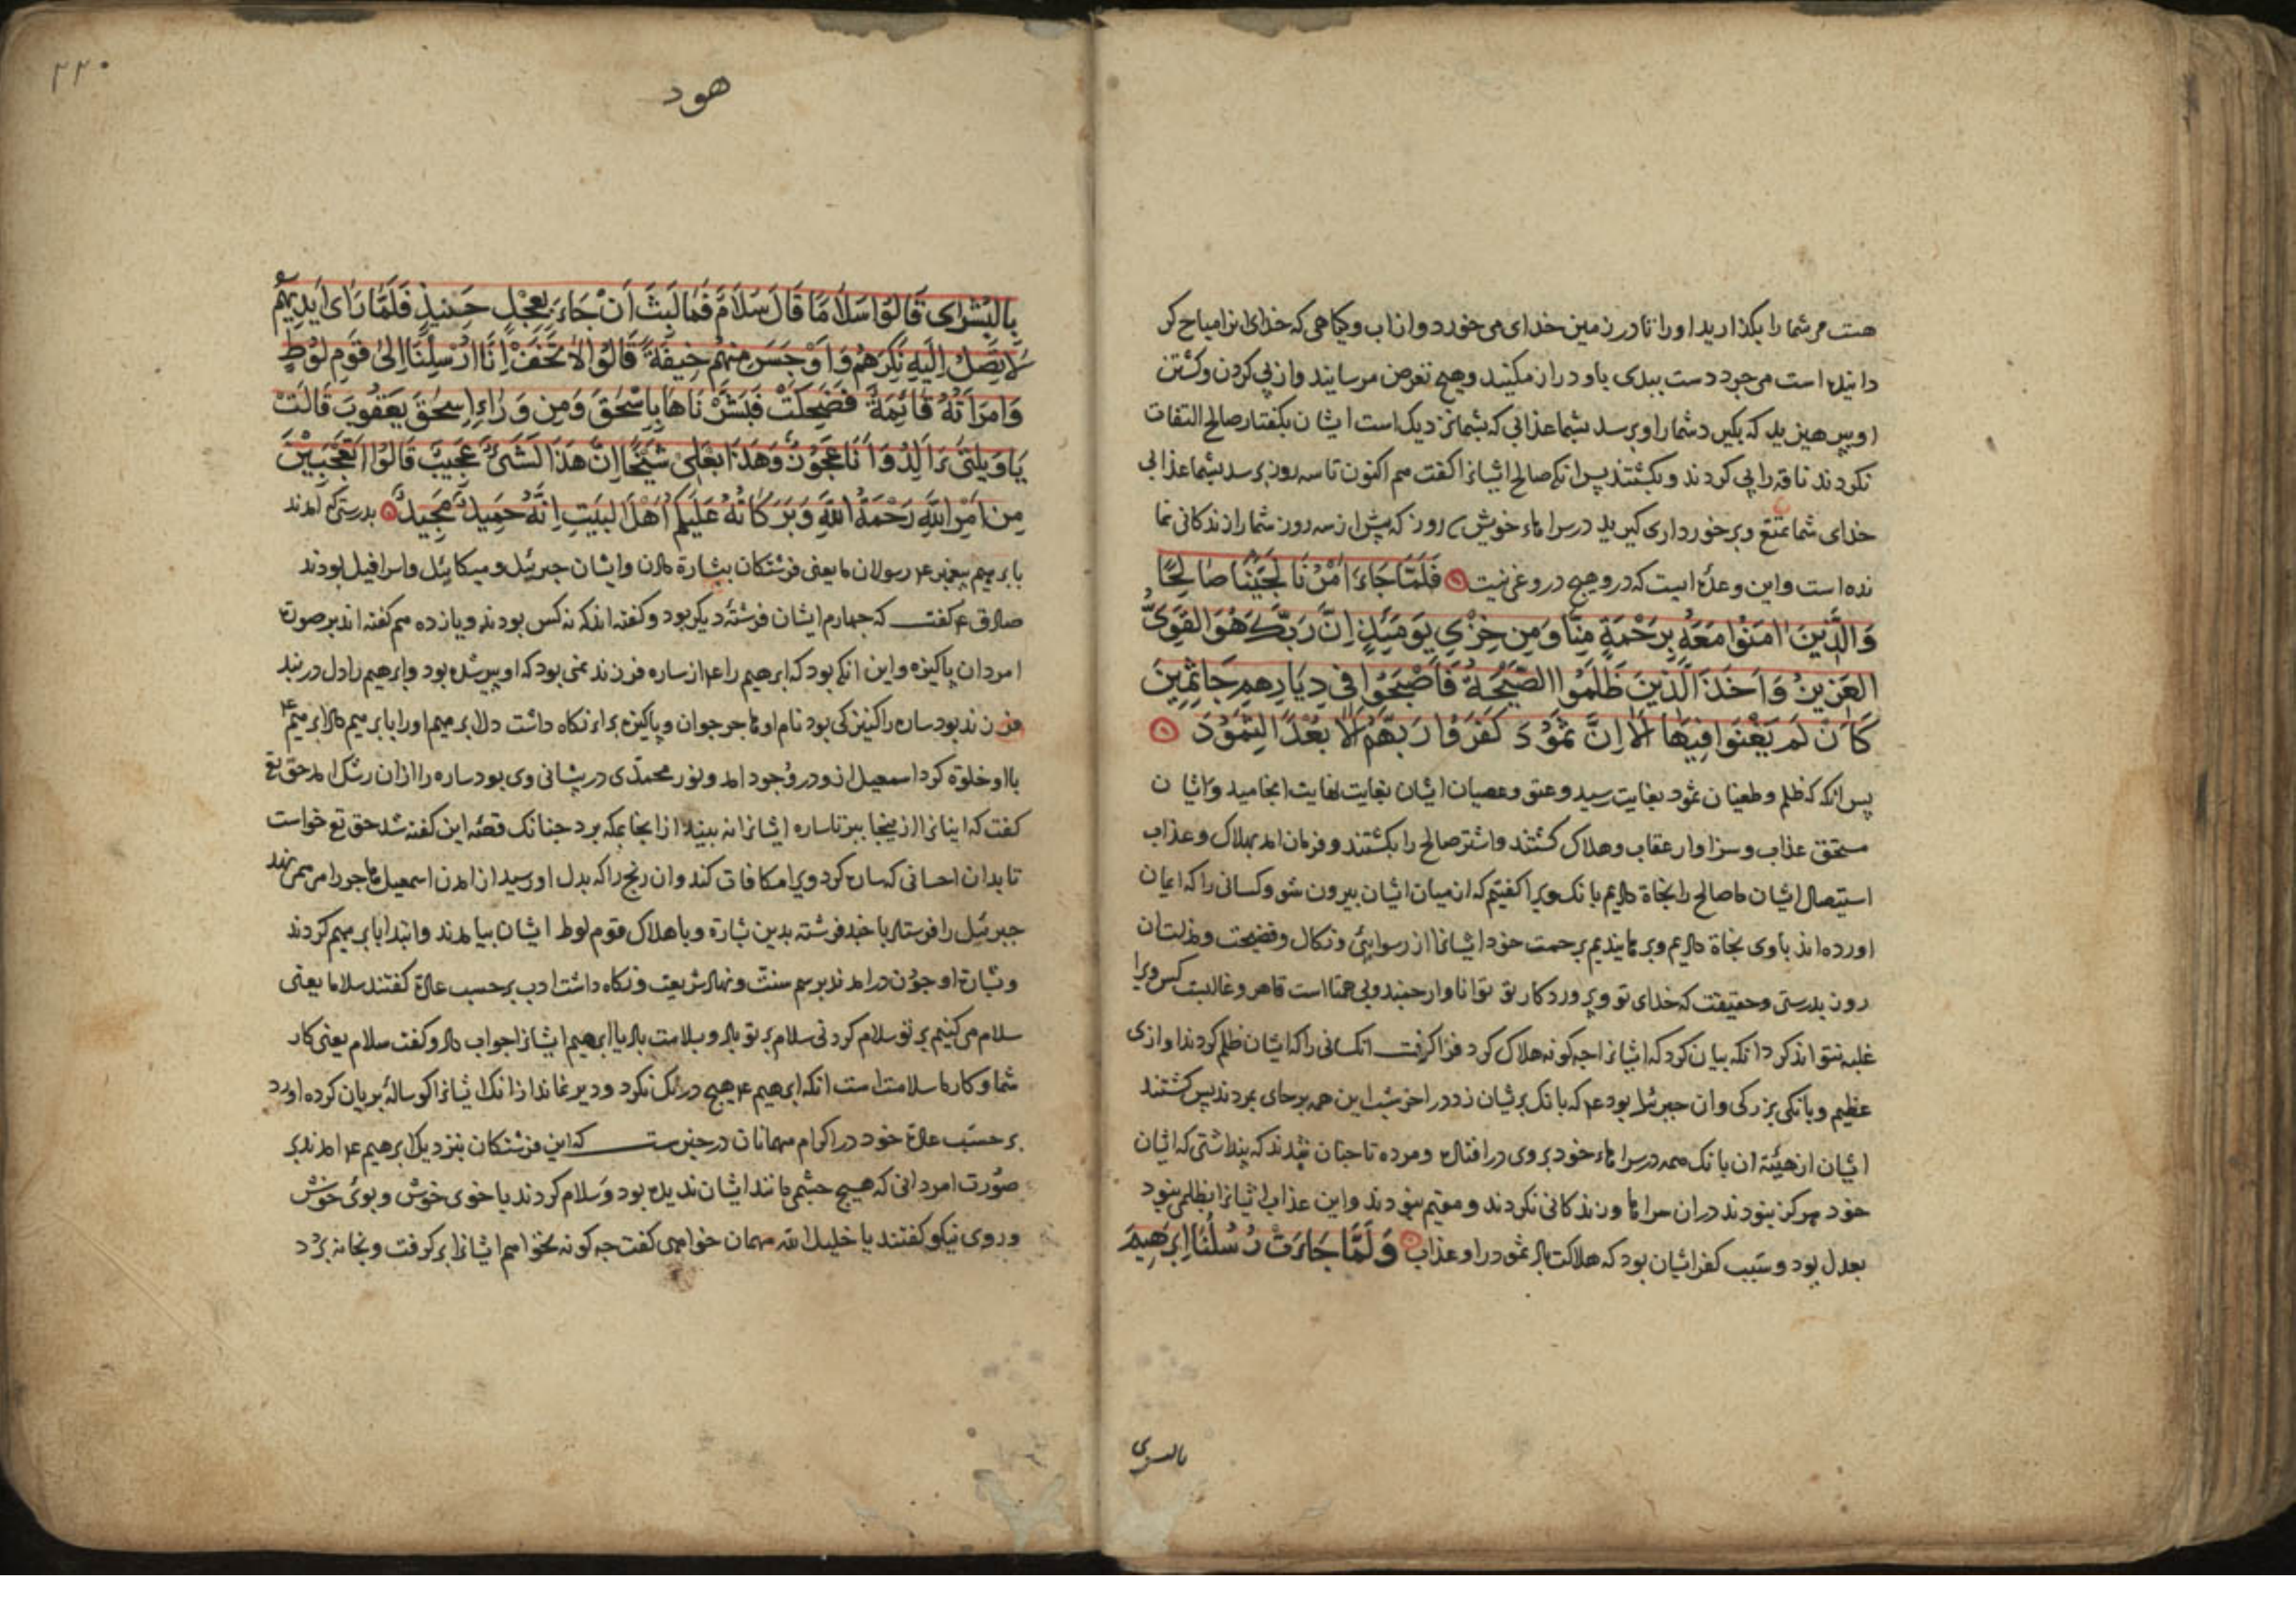 هست مر شما را بگذارید او را تا در زمین خدای می خورد و از اب و کیاهی که خدای انرا مباح کر
دانیده است می جرد دست ببدی باو دراز مکنید وهیچ تعرض مرسانید و از پی کردن و کشتن
او بپرهیزید که بگیرد شما را و برسد بشما عذابی که بشما نزدیک است ایشان بکفتار صالح التفات
نکردند ناقه را پی کردند و بکشتند پس انکه صالح ایشانرا کفت هم اکنون تا سه روز برسد بشما عذابی
خدای شما تمتع و برخورداری کیرید در سراهاء خویش روز که پیش از سه روز شما را زندکانی نما
نده است و این وعدۀ ایست که درو هیچ دروغی نیست فَلَمَّا جَاءَ اَمْرُنَا نَجَّيْنَا صَالِحًا
وَالَّذِينَ اٰمَنُوا مَعَهُ بِرَحْمَةٍ مِنَّا وَمِن خِزْيِ يَوْمَئِذٍ اِنَّ رَبَّكَ هُوَ القَوِىُّ
العَزِيزُ وَاَخَذَ الَّذِينَ ظَلَمُوا الصَّيْحَةُ فَاَصْبَحُوا فِى دِيَارِهِم جَاثِمِينَ
كَاَن لَم يَغْنَوا فِيهَا اَلَا اِنَّ ثَمُودَ كَفَرُوا رَبَّهُم اَلَا بُعْدًا لِثَمُودَ
پس انکه که ظلم و طغیان ثمود بغایت رسید و عتو و عصیان ایشان بغایت لغایت انجامید و ایشان
مستحق عذاب و سزاوار عقاب و هلاک کشتند و اشتر صالح را بکشتند و فرمان امد بهلاک و عذاب
استیصال ایشان ما صالح را نجاة دادیم بانک ویرا کفتیم که از میان ایشان بیرون شو و کسانی را که ایمان
اورده اند باوی نجاة دادیم و برهانیدیم برحمت خود ایشانرا از رسوایی و نکال و فضیحت و مذلت ان
روز بدرستی و حقیقت که خدای تو و پروردکار تو توانا و ارجمند و بی همتا است قاهر و غالبست کس ویرا
غلبه نتواند کرد انکه بیان کرد که ایشانرا چه کونه هلاک کرد فرا کرفت انکسانی را که ایشان ظلم کردند اوازی
عظیم و بانکی بزرکی و ان جبرئیل بود ع که بانک بریشان زد در اخر شب این همه برجای بمردند پس کشتند
ایشان از هیئة ان بانک همه در سراهاء خود بروی در افتاده و مرده تا چنان شدند که پنداشتی که ایشان
خود هرکز نبودند دران سراها و زندکانی نکردند و مقیم نبودند و این عذاب ایشانرا بظلم نبود
بعدل بود و سبب کفر ایشان بود که هلاکت باد ثمود را و عذاب وَلَمَّا جَاءَتْ رُسُلُنَا اِبْرٰهِيمَ
بالبشری
۲۲۰
هود
بِالْبُشْرٰى قَالُوا سَلَامًا قَالَ سَلَامٌ فَمَا لَبِثَ اَنْ جَاءَ بِعِجْلٍ حَنِيذٍ فَلَمَّا رَاٰى اَيْدِيَهُم
لَا تَصِلُ اِلَيْهِ نَكِرَهُم وَاَوْجَسَ مِنهُم خِيفَةً قَالُوا لَا تَخَفْ اِنَّا اُرْسِلْنَا اِلٰى قَومِ لُوطٍ
وَامْرَاَتُهُ قَائِمَةٌ فَضَحِكَتْ فَبَشَّرْنَاهَا بِاِسْحٰقَ وَمِن وَرَاءِ اِسحٰقَ يَعقُوبَ قَالَتْ
يَا وَيْلَتٰى ءَاَلِدُ وَاَنَا عَجُوزٌ وَهٰذَا بَعْلِى شَيْخًا اِنَّ هٰذَا لَشَىْءٌ عَجِيبٌ قَالُوا اَتَعْجَبِينَ
مِن اَمْرِ اللّٰهِ رَحْمَةُ اللّٰهِ وَبَرَكَاتُهُ عَلَيْكُم اَهْلَ البَيْتِ اِنَّهُ حَمِيدٌ مَجِيدٌ بدرستی که امدند
بابرهیم پیغمبر ع رسولان ما یعنی فرشتکان بشارة دادن و ایشان جبرئیل و میکائیل و اسرافیل بودند
صادق ع کفت که چهارم ایشان فرشتۀ دیکر بود و کفته اند که نه کس بودند و یازده هم کفته اند بر صورت
امردان پاکیزه و این انکه بود که ابرهیم را ع از ساره فرزند نمی بود که او پیر شده بود و ابرهیم را دل در بند
فرزند بود ساره را کنیزکی بود نام او هاجر جوان و پاکیزه براء نکاه داشت دل ابرهیم او را بابرهیم داد ابرهیم ع
با او خلوة کرد اسمعیل ازو در وجود امد و نور محمدی در پیشانی وی بود ساره را ازان رشک امد حق تع
کفت که اینانرا از ینجا ببر تا ساره ایشانرا نه بیند از انجا بمکه برد چنانک قصۀ این کفته شد حق تع خواست
تا بدان احسانی که ساره کرد ویرا مکافات کند وان رنج را که بدل او رسید از امدن اسمعیل هاجر را مرهمی نهد
جبرئیل را فرستاد با چند فرشته بدین بشارة و باهلاک قوم لوط ایشان بیامدند و ابتدا بابرهیم کردند
و بشارة او چون درامدند برسم سنت و نهاد شریعت و نکاه داشت ادب بر حسب عادة کفتند سلاما یعنی
سلام می کنیم بر تو سلام کردنی سلام بر تو باد و سلامت باد یا ابرهیم ایشانرا جواب داد و کفت سلام یعنی کار
شما و کار ما سلامت است انکه ابرهیم ع هیچ درنک نکرد و دیر نماند ازانک ایشانرا کوسالۀ بریان کرده اورد
بر حسب عادة خود در اکرام مهمانان در خبرست که این فرشتکان بنزدیک ابرهیم ع امدند بر
صورت امردانی که هیچ چشم مانند ایشان ندیده بود و سلام کردند با خوی خوش و بوئ خوش
و روی نیکو کفتند یا خلیل الله مهمان خواهی کفت چه کونه نخواهم ایشانرا برکرفت و بخانه برد